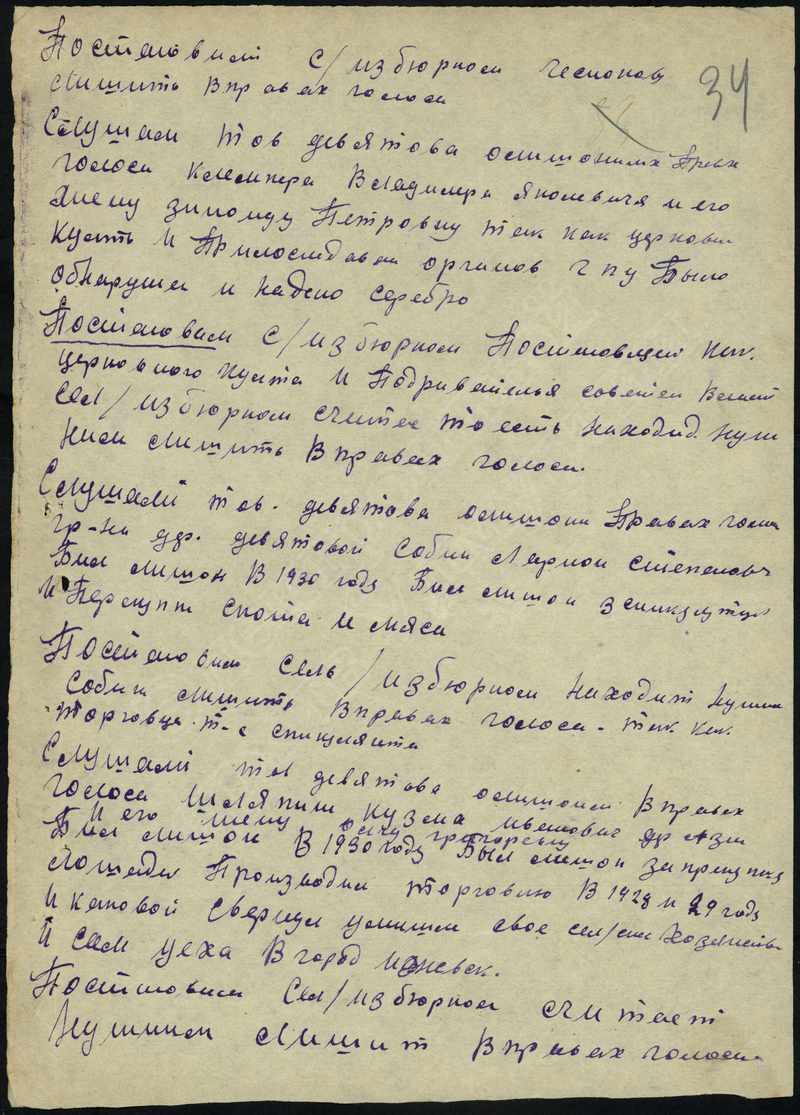 Постановили с/избюрком
лишить в правах голоса
34
Слушали тов девятова о лишонных Прав
голоса Клемпера Владимра Яколевича и его
жену зинаиду Петровну так как церковн
Култь и При органов гпу Было
обнаруши и надено серебро
Постоновили с/избюрком Постоновщем как
церковного культа и Подривателья советск власт
сел/избюрком считае то есть находид нуж
ным лишить в правах голоса.
Слушали тов. девятова о лишони Правах голос
гр-на др. девятовой Собин Ларион степанович
Был лишон в 1930 году Был лишон за
и Перекупт скота и мяса
Постоновили сель/избюрком находит нужн
Собин лишить в правах голоса - так как
торговца т-с спикулянта
Слушали тов девятова о лишони в правах
голоса Шляпин кузма ивановис др
и его жену григорьевну
Был лишон в 1930 году Был лишон за
лошадй Производил торговлю в 1928 и 29 годе
и каковой свое сел/ски хозяиств
и сам уеха в город ижевск.
Постоновили сел/избюрком считает
нужним лишит в правах голоса